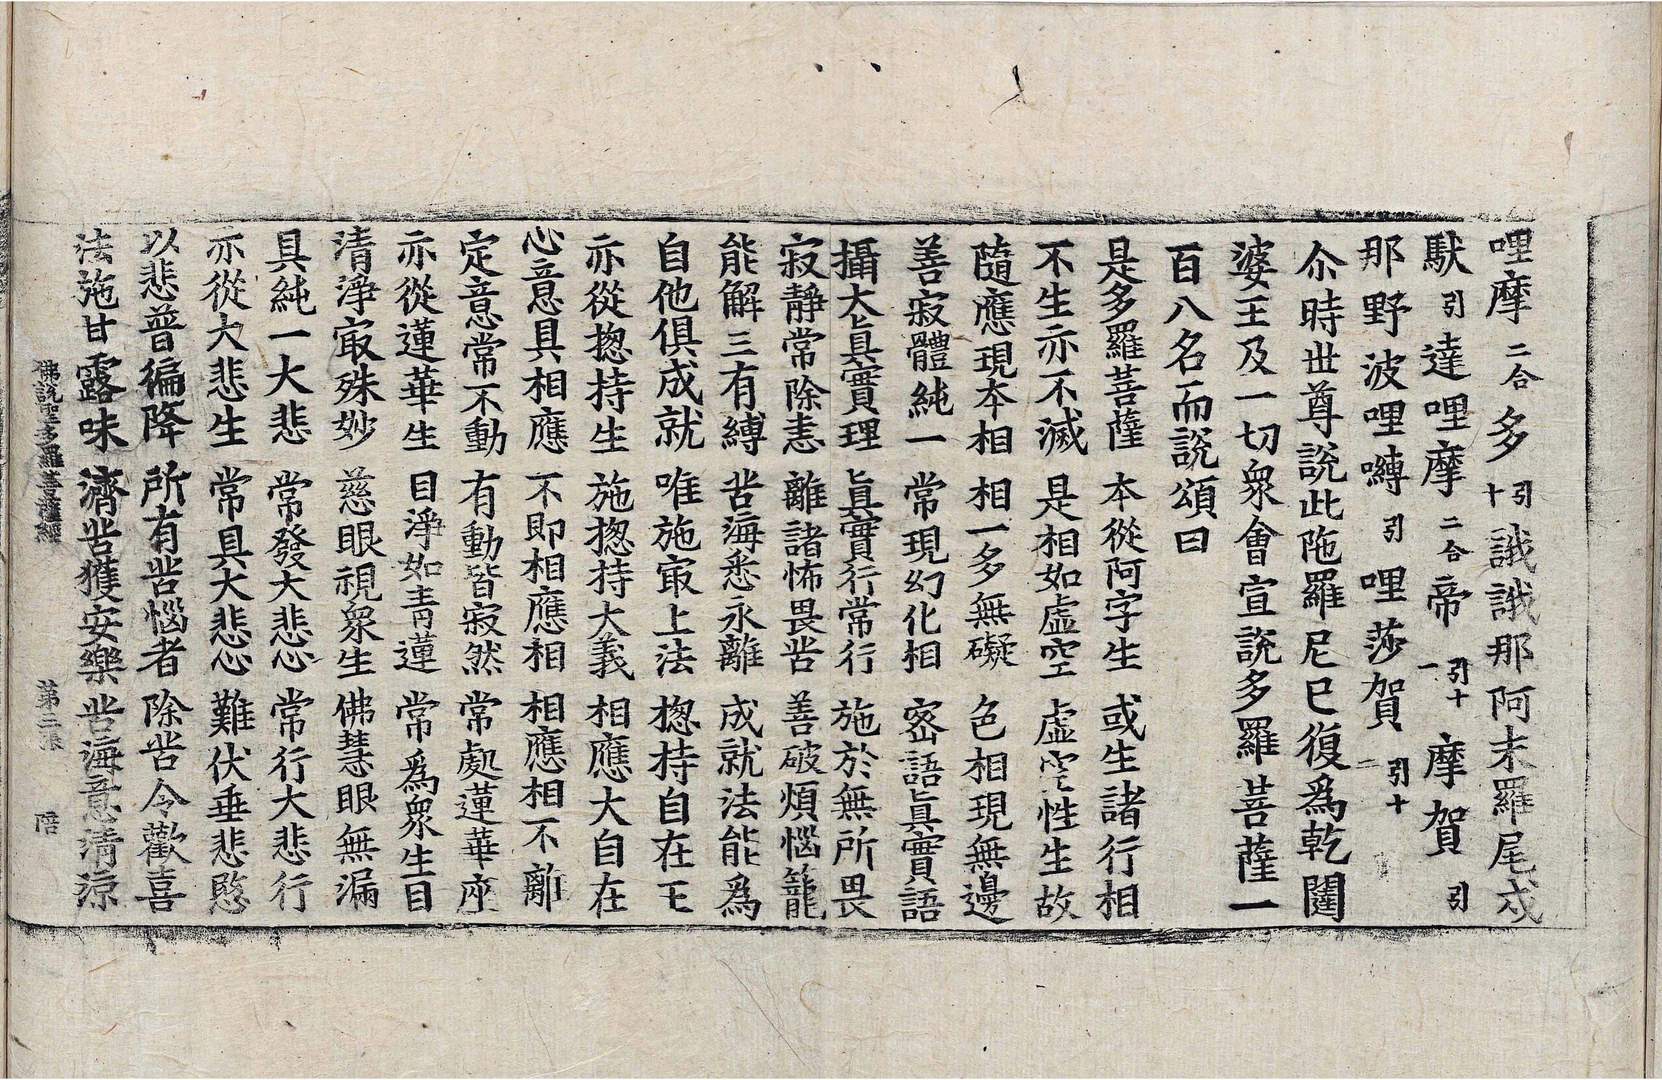 哩摩二合多引十誐誐那阿末羅尾戍
馱引達哩摩二合帝引十一摩賀引
那野波哩嚩引哩莎賀引十二
尒時世尊說此陁羅尼已復爲乾闥
婆王及一切衆會宣說多羅菩薩一
百八名而說頌曰
是多羅菩薩 本從阿字生 或生諸行相
不生亦不滅 是相如虛空 虛空性生故
隨應現夲相 相一多無礙 色相現無邊
善寂體純一 常現幻化相 密語眞實語
攝大眞實理 眞實行常行 施於無所畏
寂靜常除恚 離諸怖畏苦 善破煩惱籠
能解三有縛 苦海悉永離 成就法能爲
自他俱成就 唯施㝡上法 揔持自在王
亦從揔持生 施揔持大義 相應大自在
心意具相應 不即相應相 相應相不離
定意常不動 有動皆寂然 常處蓮華座
亦從蓮華生 目淨如青蓮 常爲衆生目
清淨㝡殊妙 慈眼視衆生 佛慧眼無漏
具純一大悲 常發大悲心 常行大悲行
亦從大悲生 常具大悲心 難伏垂悲愍
以悲普徧降 所有苦惱者 除苦令歡喜
法施甘露味 濟苦獲安樂 苦海意清涼
佛說聖多羅菩薩經 第三張 陪